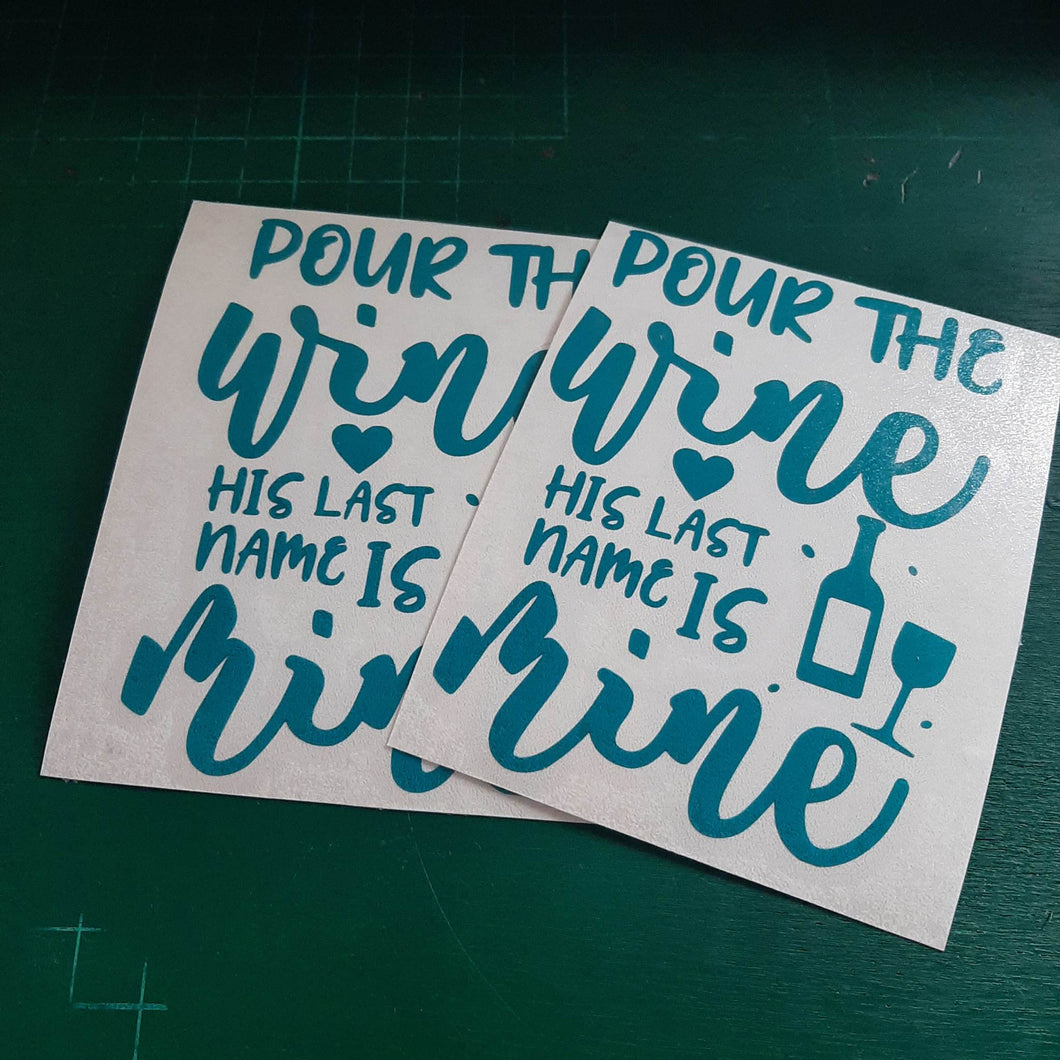 POUR TH
Win
HIS LAST
NAME IS
Min
POUR THE
Wine
HIS LAST
NAME IS
Mine